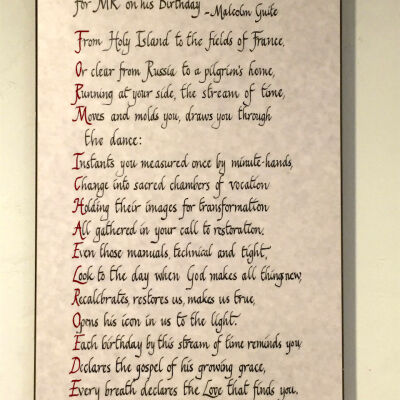 for MR on his Birthday - Malcolm Guite
From Holy Island to the fields of France,
Or clear from Russia to a pilgrim's home,
Running at your side, the stream of time,
Moves and molds you, draws you through
the dance:
Instants you measured once by minute-hands,
Change into sacred chambers of vocation
Holding their images for transformation
All gathered in your call to restoration.
Even those manuals, technical and tight,
Look to the day when God makes all things new,
Recalibrates, restores us, makes us true,
Opens his icon in us to the light.
Each birthday by this stream of time reminds you
Declares the gospel of his growing grace,
Every breath declares the Love that finds you.